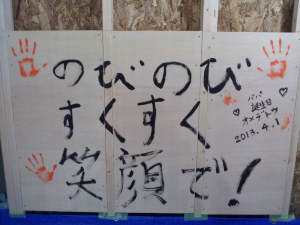 のびのび
すくすく
笑顔で!
パパ
誕生日
オメデトウ
2013.4.1